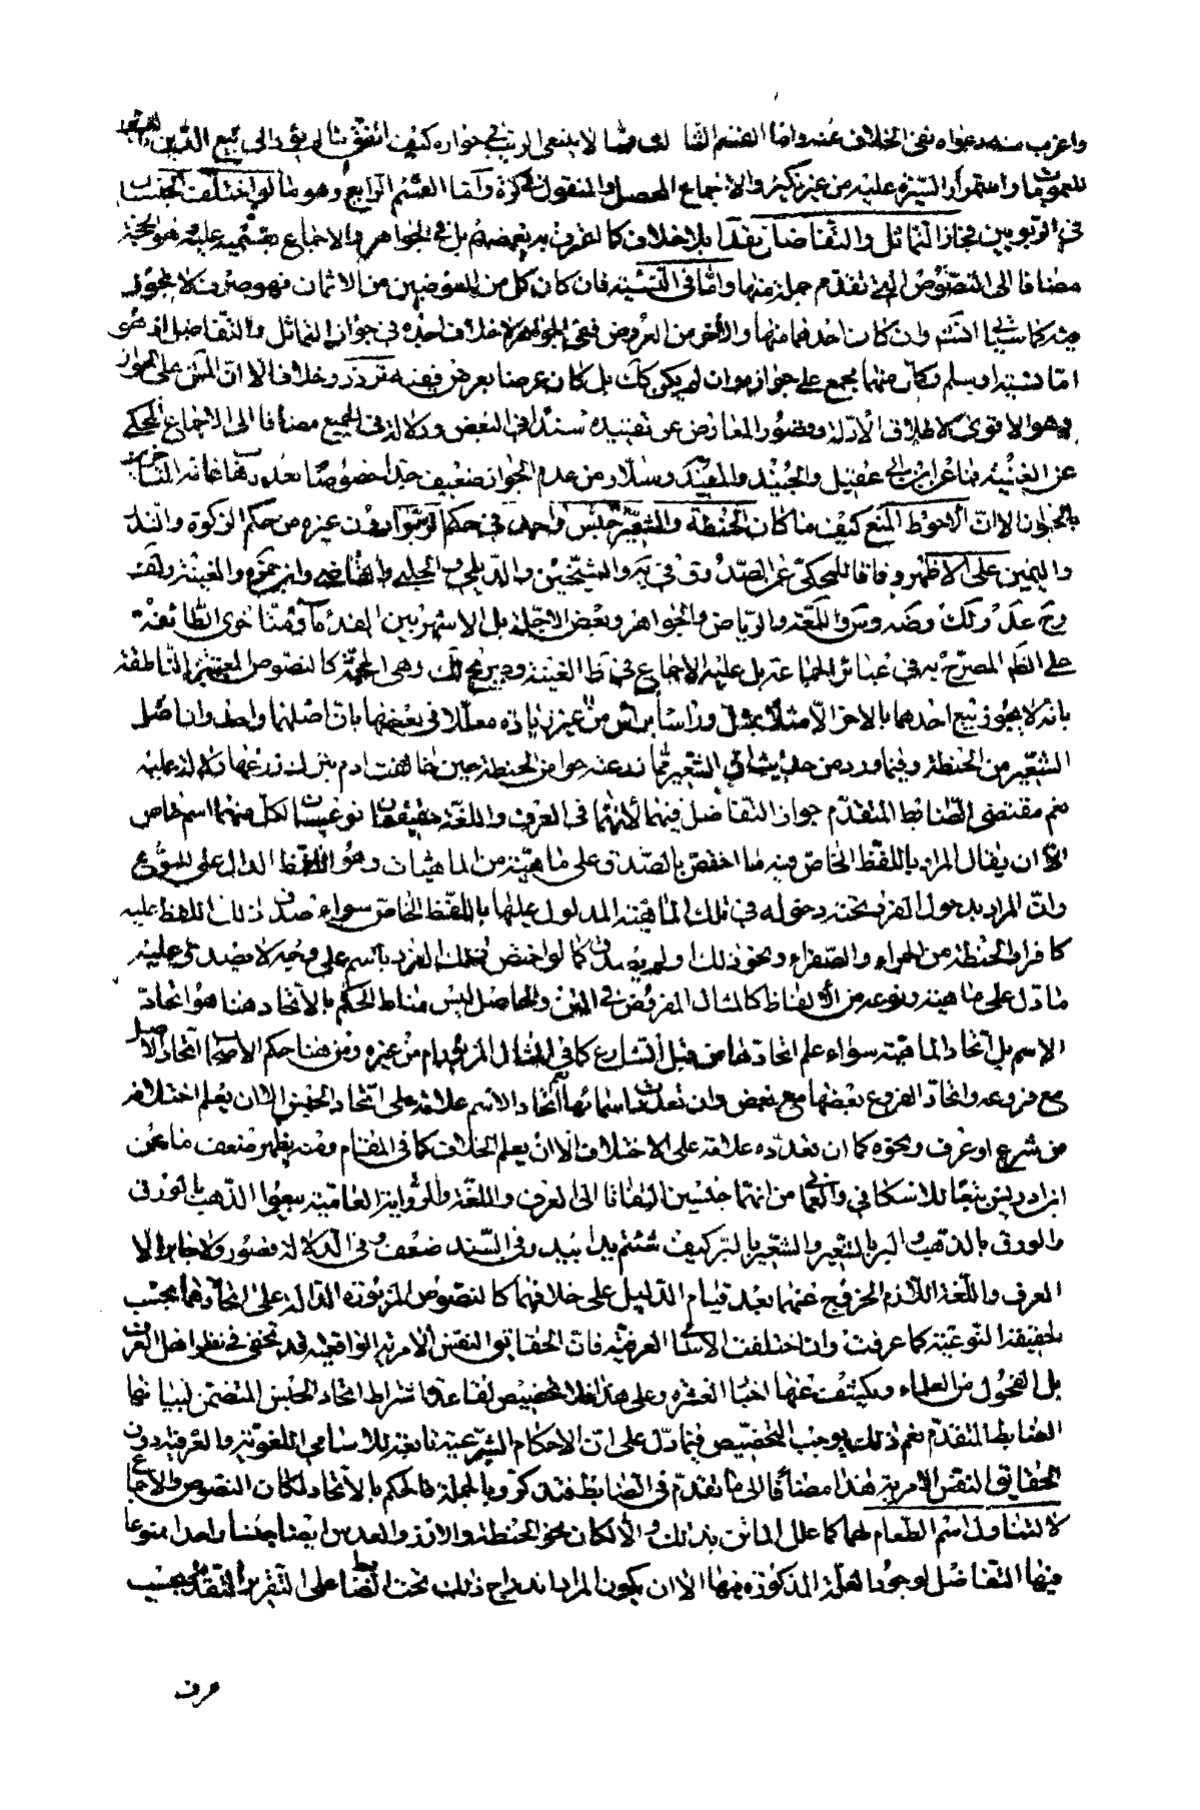 واغرب منه دعواه نفي الخلاف عنه واما القسم الثالث فما لا ينبغي الريب في جوازه كيف اتفق ما لم يؤد الى بيع الدين
للعمومات واستمرار السيرة عليه من غير نكير والاجماع المحصل والمنقول وامّا القسم الرابع وهو ما لو اختلفت الجنس
في الربويين فجاز التماثل والتفاضل نقدا بلا خلاف كما اعترف به بعضهم بل في الجواهر والاجماع بقسميه عليه هو الحجة
مضافا الى النصوص التي تقدم جملة منها وامّا في النسيئة فان كان كل من العوضين من الاثمان فهو صرف لا يجوز
فيه كما سيأتي انشاء وان كان احدهما منها والاخر من العروض ففي الجواهر لا خلاف اجده في جواز التماثل والتفاضل اذ هو
امّا نسيئة او سلم وكل منهما مجمع على جوازه وان لم يكن كك بل كان عرضا بعرض ففيه تردد وخلاف الا انّ المتن على الجواز
وهو الاقوى لاطلاق الادلة وقصور المعارض عن تقييده سندا في البعض ودلالة في الجميع مضافا الى الاجماع المحكي
عن الغنية فما عن ابن ابي عقيل والجنيد والمفيد وسلار من عدم الجواز ضعيف جدا خصوصا بعد
الا انّ الاحوط المنع كيف ما كان الحنطة والشعير جنس واحد في حكم الربوا دون غيره من حكم الزكوة والنذر
واليمين على الاظهر وفاقا للمحكي عن الصدوق في والشيخين والديلمي والحلبي والقاضي وابن حمزة والغنية
والرياض والجواهر وبعض الاجلة بل الاشهر بين القدماء
على الظم المصرح به في عبائر الجماعة بل عليه الاجماع في ظ الغنية وصريح وهي الحجة كالنصوص المعتبرة الناطقة
بانه لا يجوز بيع احدهما بالاخر الّا مثلا بمثل وراسا براس من غير زيادة معللا في بعضها بان اصلهما واحد وان اصل
الشعير من الحنطة وفيما ورد من حديث
نعم مقتضى الضابط المتقدم جواز التفاضل فيهما لانهما في العرف واللغة حقيقتان نوعيتان لكل منهما اسم خاص
الا ان يقال المراد باللفظ الخاص فيه ما اختص بالصدق على ماهية من الماهيات وهو اللفظ الدال على النوع
وانّ المراد بدخول الفرد تحته دخوله في تلك الماهية المدلول عليها باللفظ الخاص سواء صدق ذلك اللفظ عليه
كافراد الحنطة من الحمراء والصفراء ونحو ذلك او لم يصدق كما لو اختص ذلك الفرد باسم على وجه لا يصدق عليه
ما دل على ماهيته ونوعه من الالفاظ كالمثال المفروض في المتن والحاصل ليس مناط الحكم بالاتحاد هنا هو اتحاد
الاسم بل اتحاد الماهية سواء علم اتحادها من قبل الشارع كما في المثال المزبور ام من غيره ومن هنا حكم الاصحاب اتحاد الاصل
مع فروعه واتحاد الفروع بعضها مع بعض وان تعددت اسمائها اتحاد الاسم علامة على اتحاد الجنس الا ان يعلم اختلافه
من شرع او عرف ونحوه كما ان تعدده علامة على الاختلاف الا ان يعلم الخلاف كما في المقام ومنه يظهر ضعف ما عن
ابن ادريس تبعا للاسكافي والعماني من انهما جنسين التفاتا الى العرف واللغة والرواية العامية بيعوا الذهب بالورق
والورق بالذهب والبر بالشعير والشعير بالبر كيف شئتم يدا بيد وفي السند ضعف وفي الدلالة قصور ولا جابر الا
العرف واللغة اللازم الخروج عنهما بعد قيام الدليل على خلافهما كالنصوص المزبورة الدالة على اتحادهما بحسب
الحقيقة النوعية كما عرفت وان اختلفت الاسماء العرفية فان الحقايق النفس الامرية الواقعية قد تخفى في نظر اهل العرف
بل الفحول من العلماء ويكشف عنها اخبار العترة وعلى هذا فلا تخصيص لقاعدة اشتراط اتحاد الجنس المتضمن لبيانها
الضابط المتقدم نعم ذلك يوجب التخصيص فيما دل على ان الاحكام الشرعية تابعة للاسامي اللغوية والعرفية دون
الحقايق النفس الامرية هذا مضافا الى ما تقدم في الضابط فتذكر وبالجملة فالحكم بالاتحاد لمكان النصوص والاجماع
لا لتناول اسم الطعام لهما كما علل الماتن بذلك والا لكان نحو الحنطة والارز والعدس ايضا جنسا واحدا ممنوعا
فيها التفاضل لوجود العلة المذكورة فيها الا ان يكون المراد اندراج ذلك تحت الضابط على التقرير المتقدم بحسب
عرف